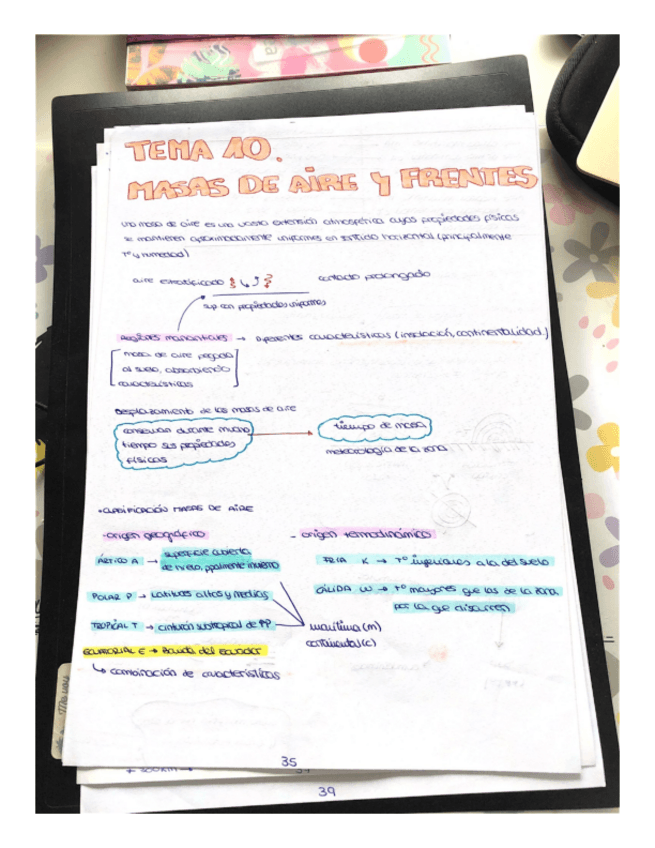 TEMA 10.
MASAS DE AIRE Y FRENTES
Una masa de aire es una vasta extensión atmosférica cuyas propiedades físicas
se mantienen aproximadamente uniformes en sentido horizontal (principalmente
Tº y humedad)
aire estratificado contacto prolongado
sup con propiedades uniformes
Regiones manantiales → Diferentes características (insolación, continentalidad)
masa de aire pegada
al suelo, absorbiendo
características
Desplazamiento de las masas de aire
conservan durante mucho
tiempo sus propiedades
físicas
tiempo de masa
meteorología de la zona
• CLASIFICACIÓN MASAS DE AIRE
- origen geográfico
- origen termodinámico
ÁRTICO A → superficie cubierta
de nieve, ppalmente invierno
FRIA K → Tº inferiores a la del suelo
POLAR P → Latitudes altas y medias
CÁLIDA W → Tº mayores que las de la zona
por la que discurren
TROPICAL T → cinturón subtropical de PP
marítima (m)
continental (c)
ECUATORIAL E → Banda del Ecuador
↳ combinación de características
35
39